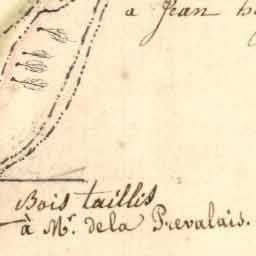 a Jean
Bois taillis
à Mr. dela Prevalais.